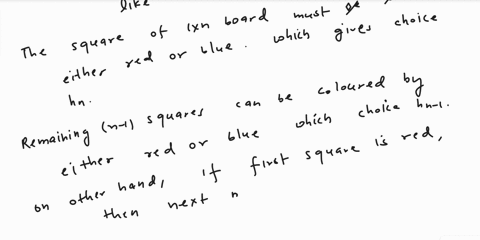 like
The square of 1xn board must
either red or blue. which gives choice
hn.
Remaining (n-1) squares can be coloured by
either red or blue which choice hn-1.
on other hand, if first square is red,
then next